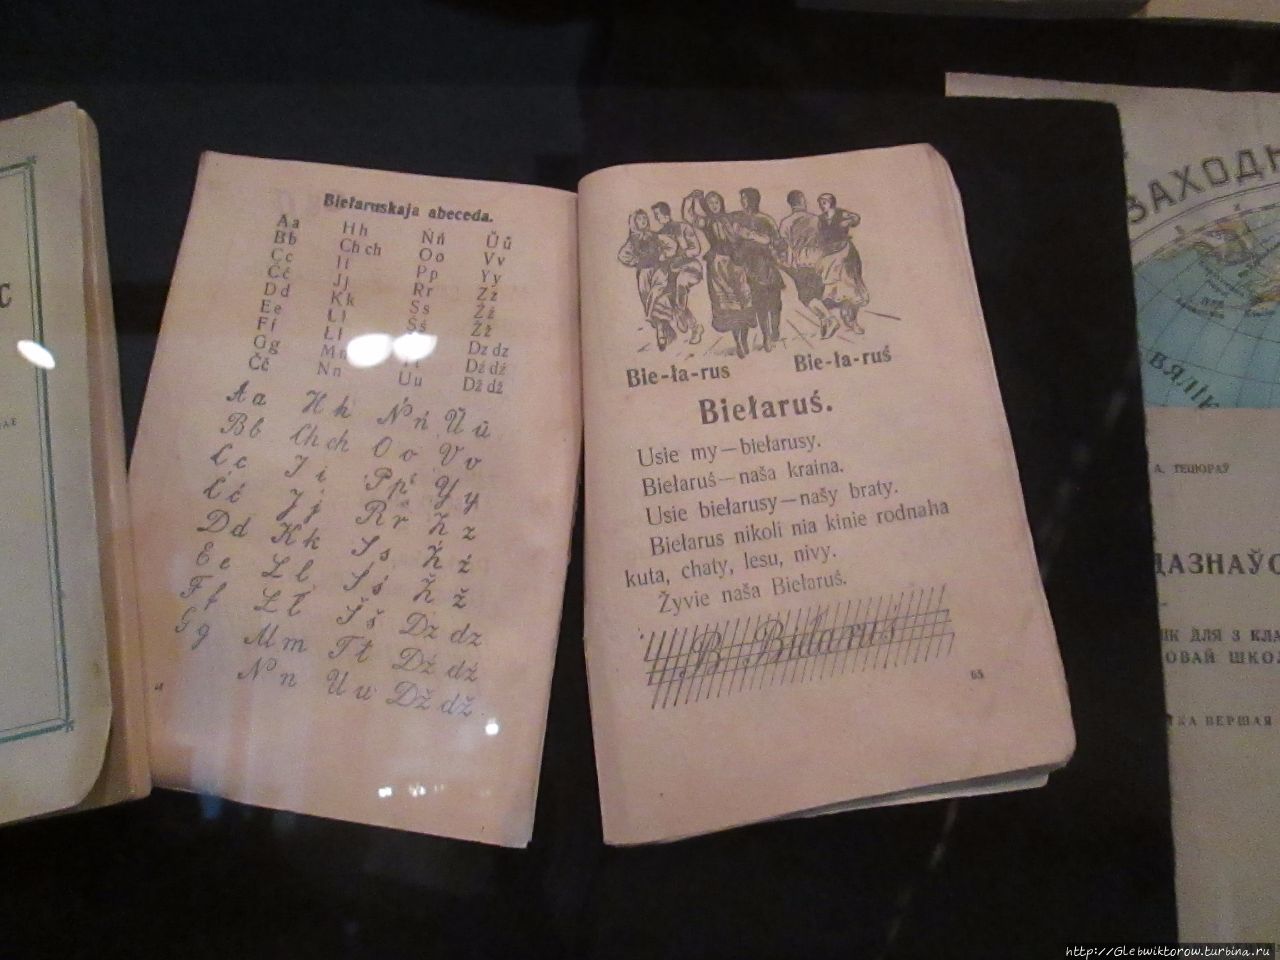 Biełaruskaja abeceda.
Aa Hh Ńń Ŭŭ
Bb Ch ch Oo Vv
Cc Ii Pp Yy
Ćć Jj Rr Zz
Dd Kk Ss Źź
Ee Ll Śś Žž
Ff Łł Dz dz
Gg Mm Dź dź
Čč Nn Uu Dž dž
Aa Hh Ńń Ŭŭ
Bb Ch ch Oo Vv
Cc Ii Pp Yy
Ćć Jj Rr Zz
Dd Kk Ss Źź
Ee Ll Śś Žž
Ff Łł Šš Dz dz
Gg Mm Tt Dź dź
Nn Uu Dž dž
Bie-ła-rus Bie-ła-ruś
Biełaruś.
Usie my—biełarusy.
Biełaruś—naša kraina.
Usie biełarusy—našy braty.
Biełarus nikoli nia kinie rodnaha
kuta, chaty, lesu, nivy.
Žyvie naša Biełaruś.
B Biełaruś
65
С
ЗАХОДН
ВЯЛІК
А. ТЕЦЮРАЎ
ДАЗНАЎС
ІК ДЛЯ 3 КЛА
ОВАЙ ШКОЛ
ТКА ВЕРШАЯ
http://Glebwiktorow.turbina.ru